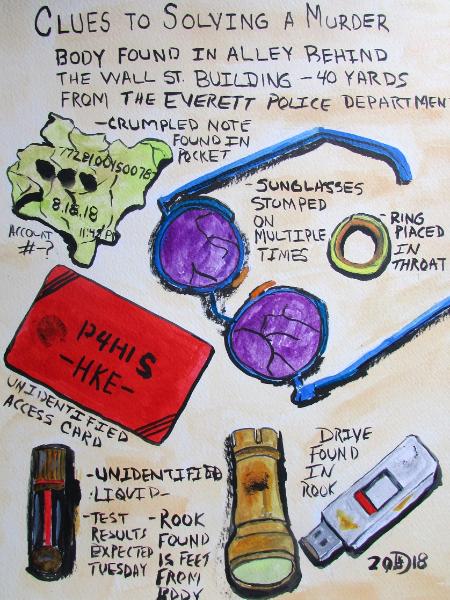 CLUES TO SOLVING A MURDER
BODY FOUND IN ALLEY BEHIND
THE WALL ST. BUILDING - 40 YARDS
FROM THE EVERETT POLICE DEPARTMENT
- CRUMPLED NOTE
FOUND IN
POCKET
ACCOUNT
#-?
- SUNGLASSES
STOMPED
ON
MULTIPLE
TIMES
- RING
PLACED
IN
THROAT
P4H1S
-HKE-
UNIDENTIFIED
ACCESS CARD
- UNIDENTIFIED
LIQUID -
- TEST
RESULTS
EXPECTED
TUESDAY
- ROOK
FOUND
15 FEET
FROM
BODY
DRIVE
FOUND
IN
ROOK
20 18